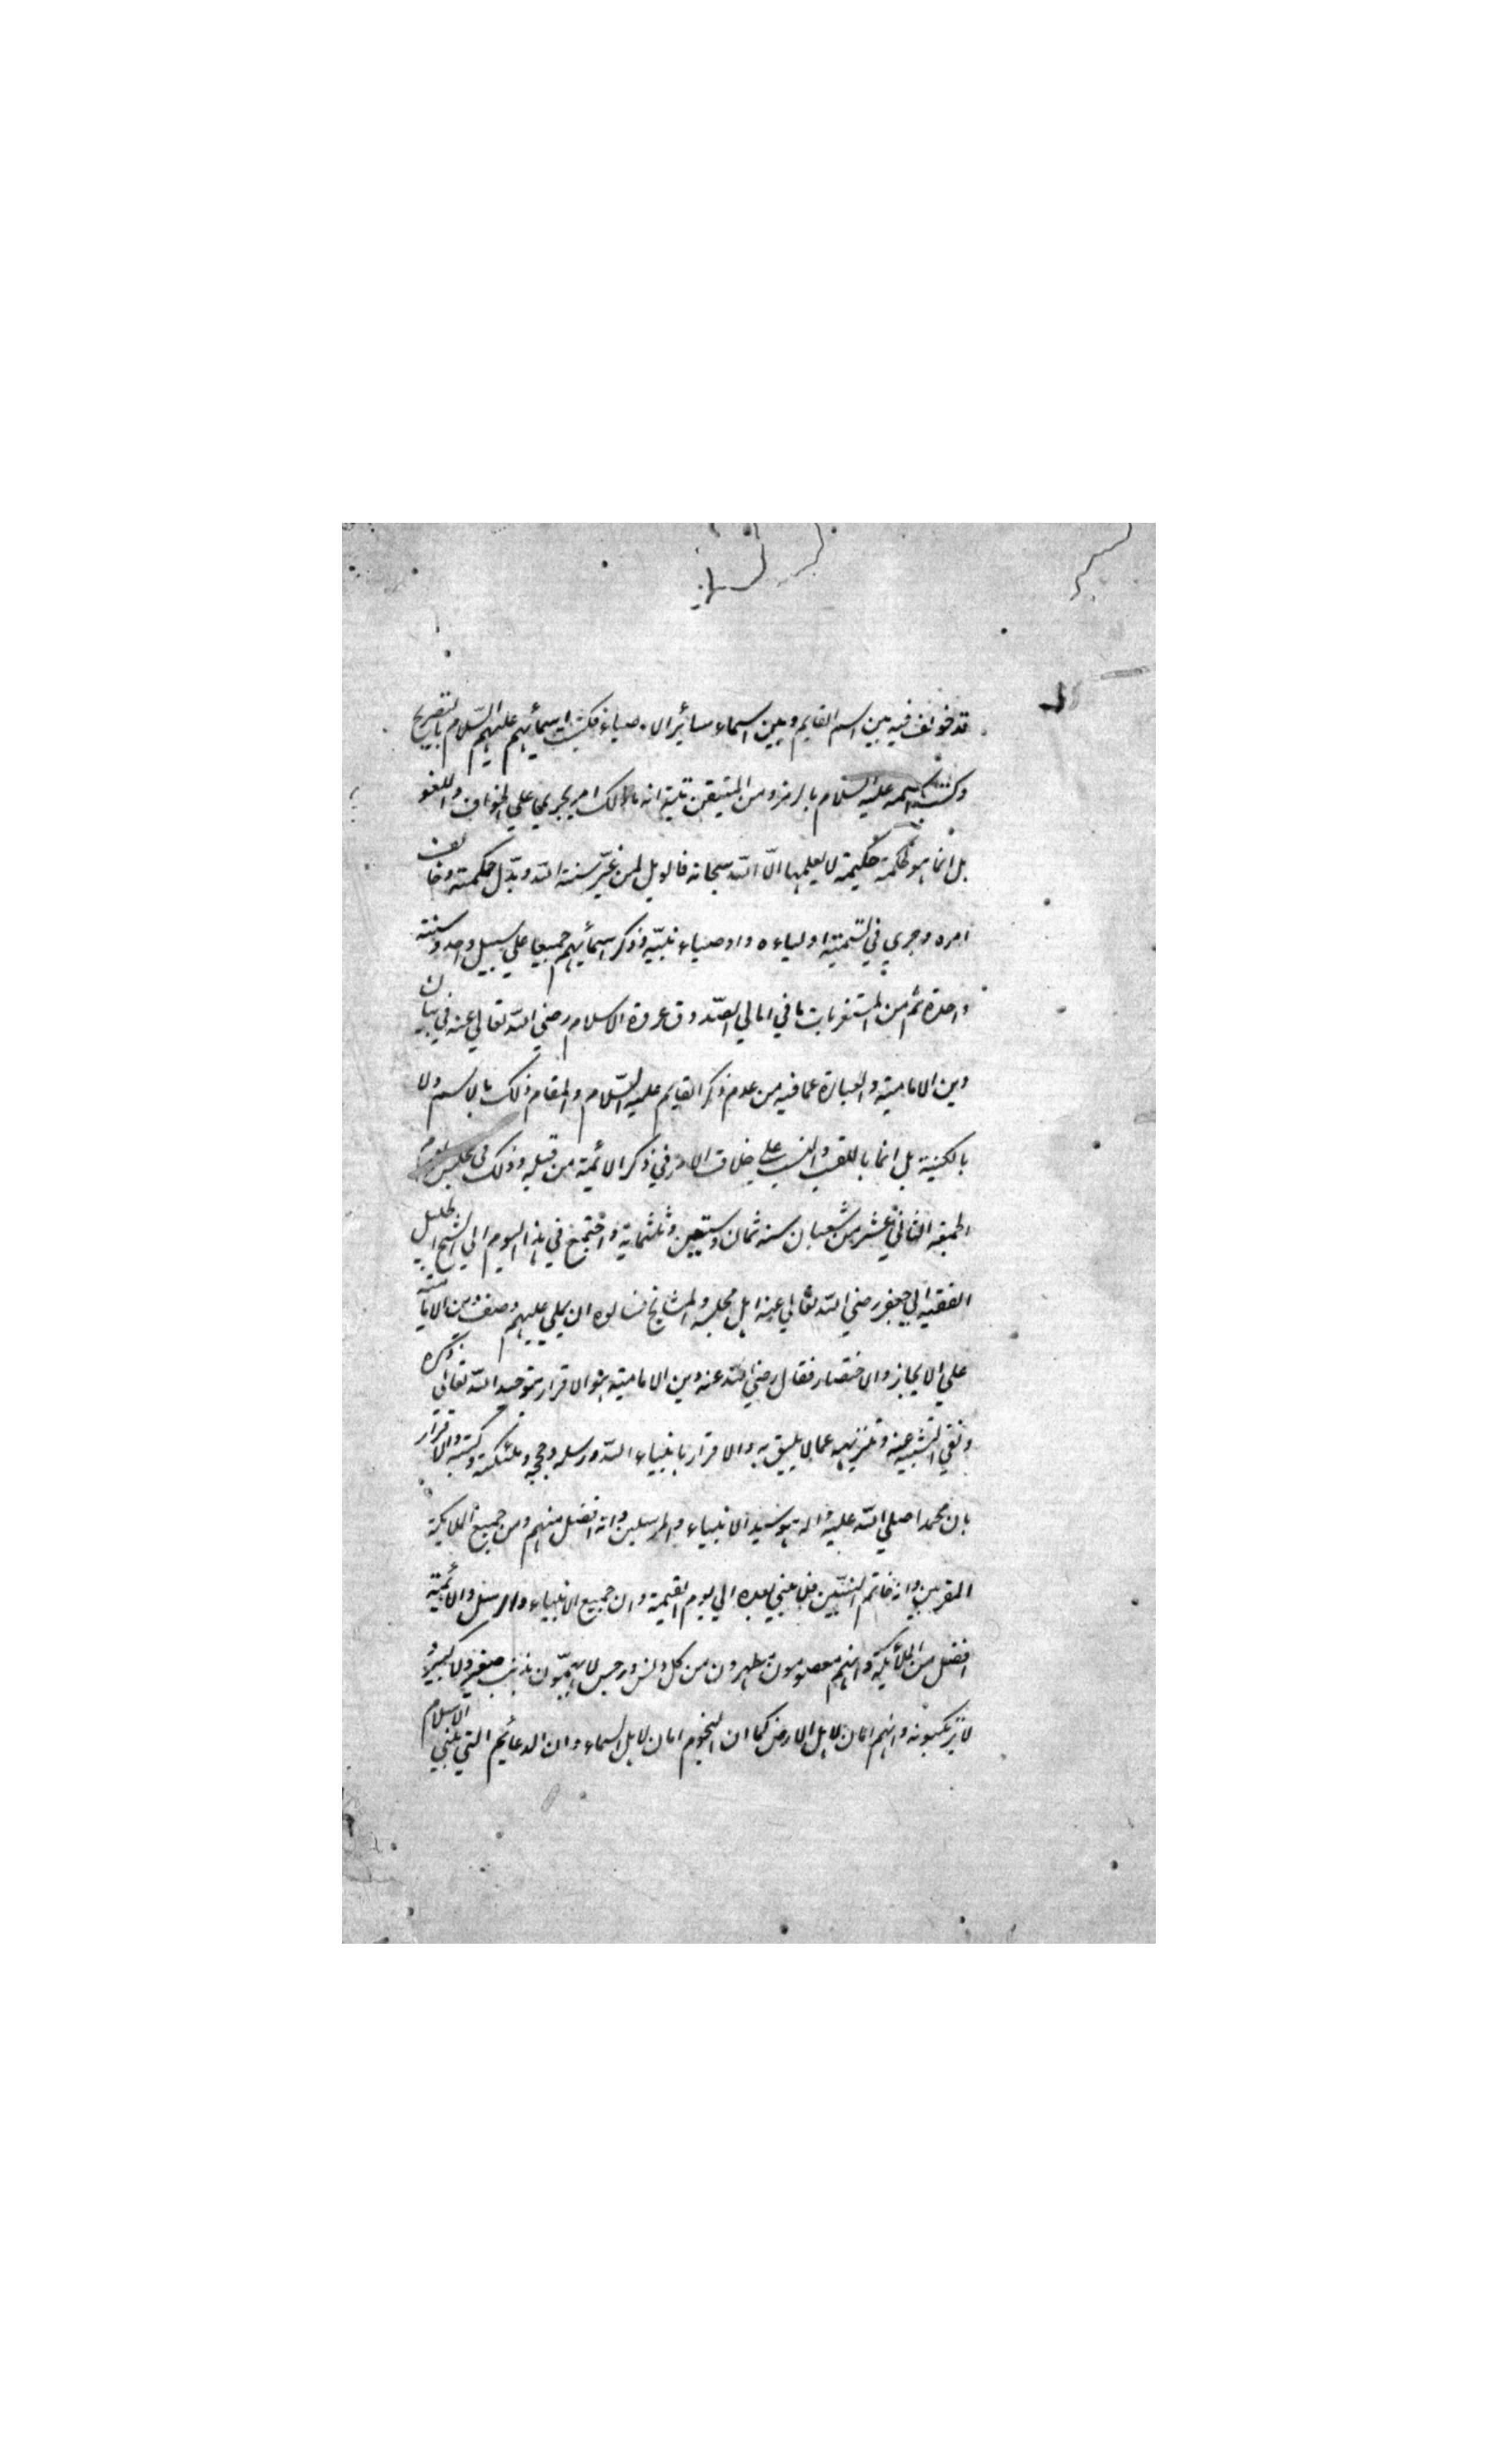 قد خولف فيه بين اسم القايم وبين اسماء سائر الاوصياء فكتبت اسمائهم عليهم السّلام بالتصريح
وكتب اسمه عليه السلام بالرمز ومن المتيقن انه ما ذلك امر يجري علي الجزاف واللغو
بل انما هو لحكمة حكيمة لا يعلمها الّا اللّه سبحانه فالويل لمن غيّر سنة اللّه وبدّل حكمته وخالف
امره وجري في تسمية اولياءه واوصياء نبيّه وذكر اسمائهم جميعا علي سبيل واحد وسنته
واحدة ثم من المستغربات ما في امالي الصّدوق عروة الاسلام رضي اللّه تعالي عنه في بيان
دين الامامية والعبارة عما فيه من عدم ذكر القايم عليه السّلام والمقام ذلك بالاسم ولا
بالكنية بل انما باللقب والنسب علي خلاف الامر في ذكر الائمة من قبله وذلك في مجلس يوم
الجمعة الثاني عشر من شعبان سنه ثمان وستين وثلثماية واجتمع في هذا اليوم الي الشيخ الجليل
الفقيه ابي جعفر رضي اللّه تعالي عنه اهل مجلسه والمشايخ فسالوه ان يملي عليهم وصف دين الامامية
علي الايجاز والاختصار فقال رضي اللّه عنه دين الامامية هو الاقرار بتوحيد اللّه تعالي ذكره
ونفي التشبيه عنه وتنزيهه عما لا يليق به والاقرار بانبياء اللّه ورسله وحججه وملئكته وكتبه والاقرار
بان محمدا صلي اللّه عليه واله هو سيد الانبياء والمرسلين وانه افضل منهم ومن جميع الملايكة
المقربين وانه خاتم النبيّين فلا نبي بعده الي يوم القيمة وان جميع الانبياء والرسل والائمّة
افضل من الملائكة وانهم معصومون مطهرون من كل دنس ورجس لا يهمّون بذنب صغير ولا كبير و
لا يرتكبونه وانهم امان لاهل الارض كما ان النجوم امان لاهل السماء وان الدعائم التي بني الاسلام